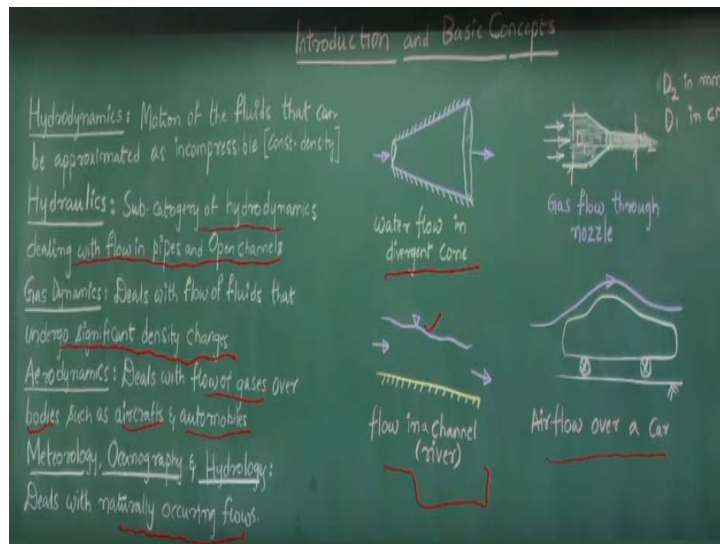 Introduction and Basic Concepts
Hydrodynamics: Motion of the fluids that can
be approximated as incompressible [Const. density]
Hydraulics: Sub-catogery of hydrodynamics
dealing with flow in pipes and Open channels
Gas Dynamics: Deals with flow of fluids that
undergo significant density changes
Aerodynamics: Deals with flow of gases over
bodies such as aircrafts & automobiles
Meteorology, Oceanography & Hydrology:
Deals with naturally occuring flows.
Water flow in
divergent cone
D₂ in mm
D₁ in cm
Gas flow through
nozzle
flow in a channel
(river)
Air flow over a car